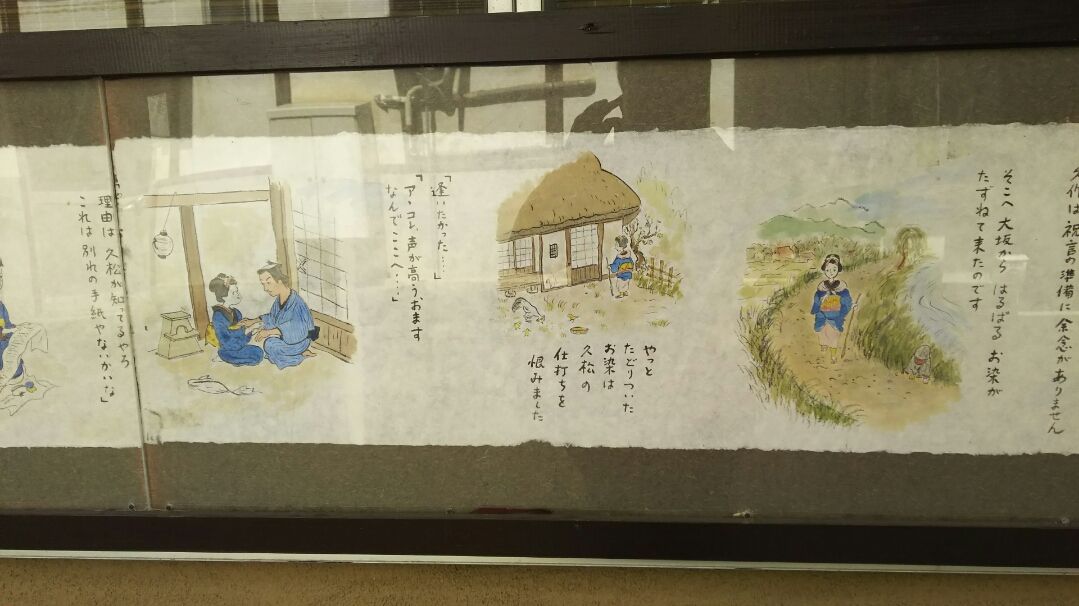 久作は祝言の準備に余念がありません
そこへ 大坂から はるばる お染が
たずねて来たのです
やっと
たどりついた
お染は
久松の
仕打ちを
恨みました
「逢いたかった……」
「アヽコレ、声が高うおます
なんでここへ……」
理由は 久松が知ってるやろ
これは 別れの手紙やないかいな」